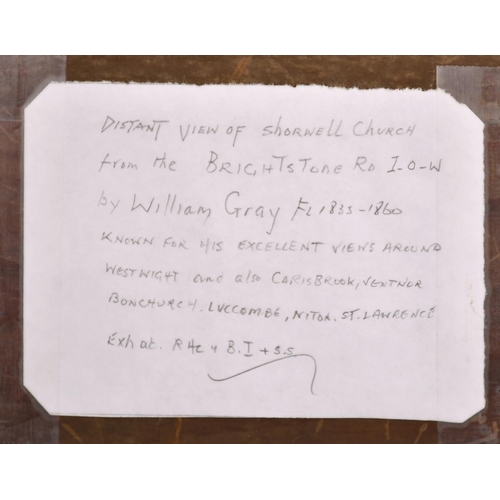 DISTANT VIEW OF ShORWELL CHURCH
from the BRIGHTSTONE RD I-O-W
by William Gray FL 1835-1860
KNOWN FOR HIS EXCELLENT VIEWS AROUND
WESTWIGHT and also CARISBROOK, VENTNOR
BONCHURCH. LUCCOMBE, NITON. ST. LAWRENCE
Exh at. B.I + S.S